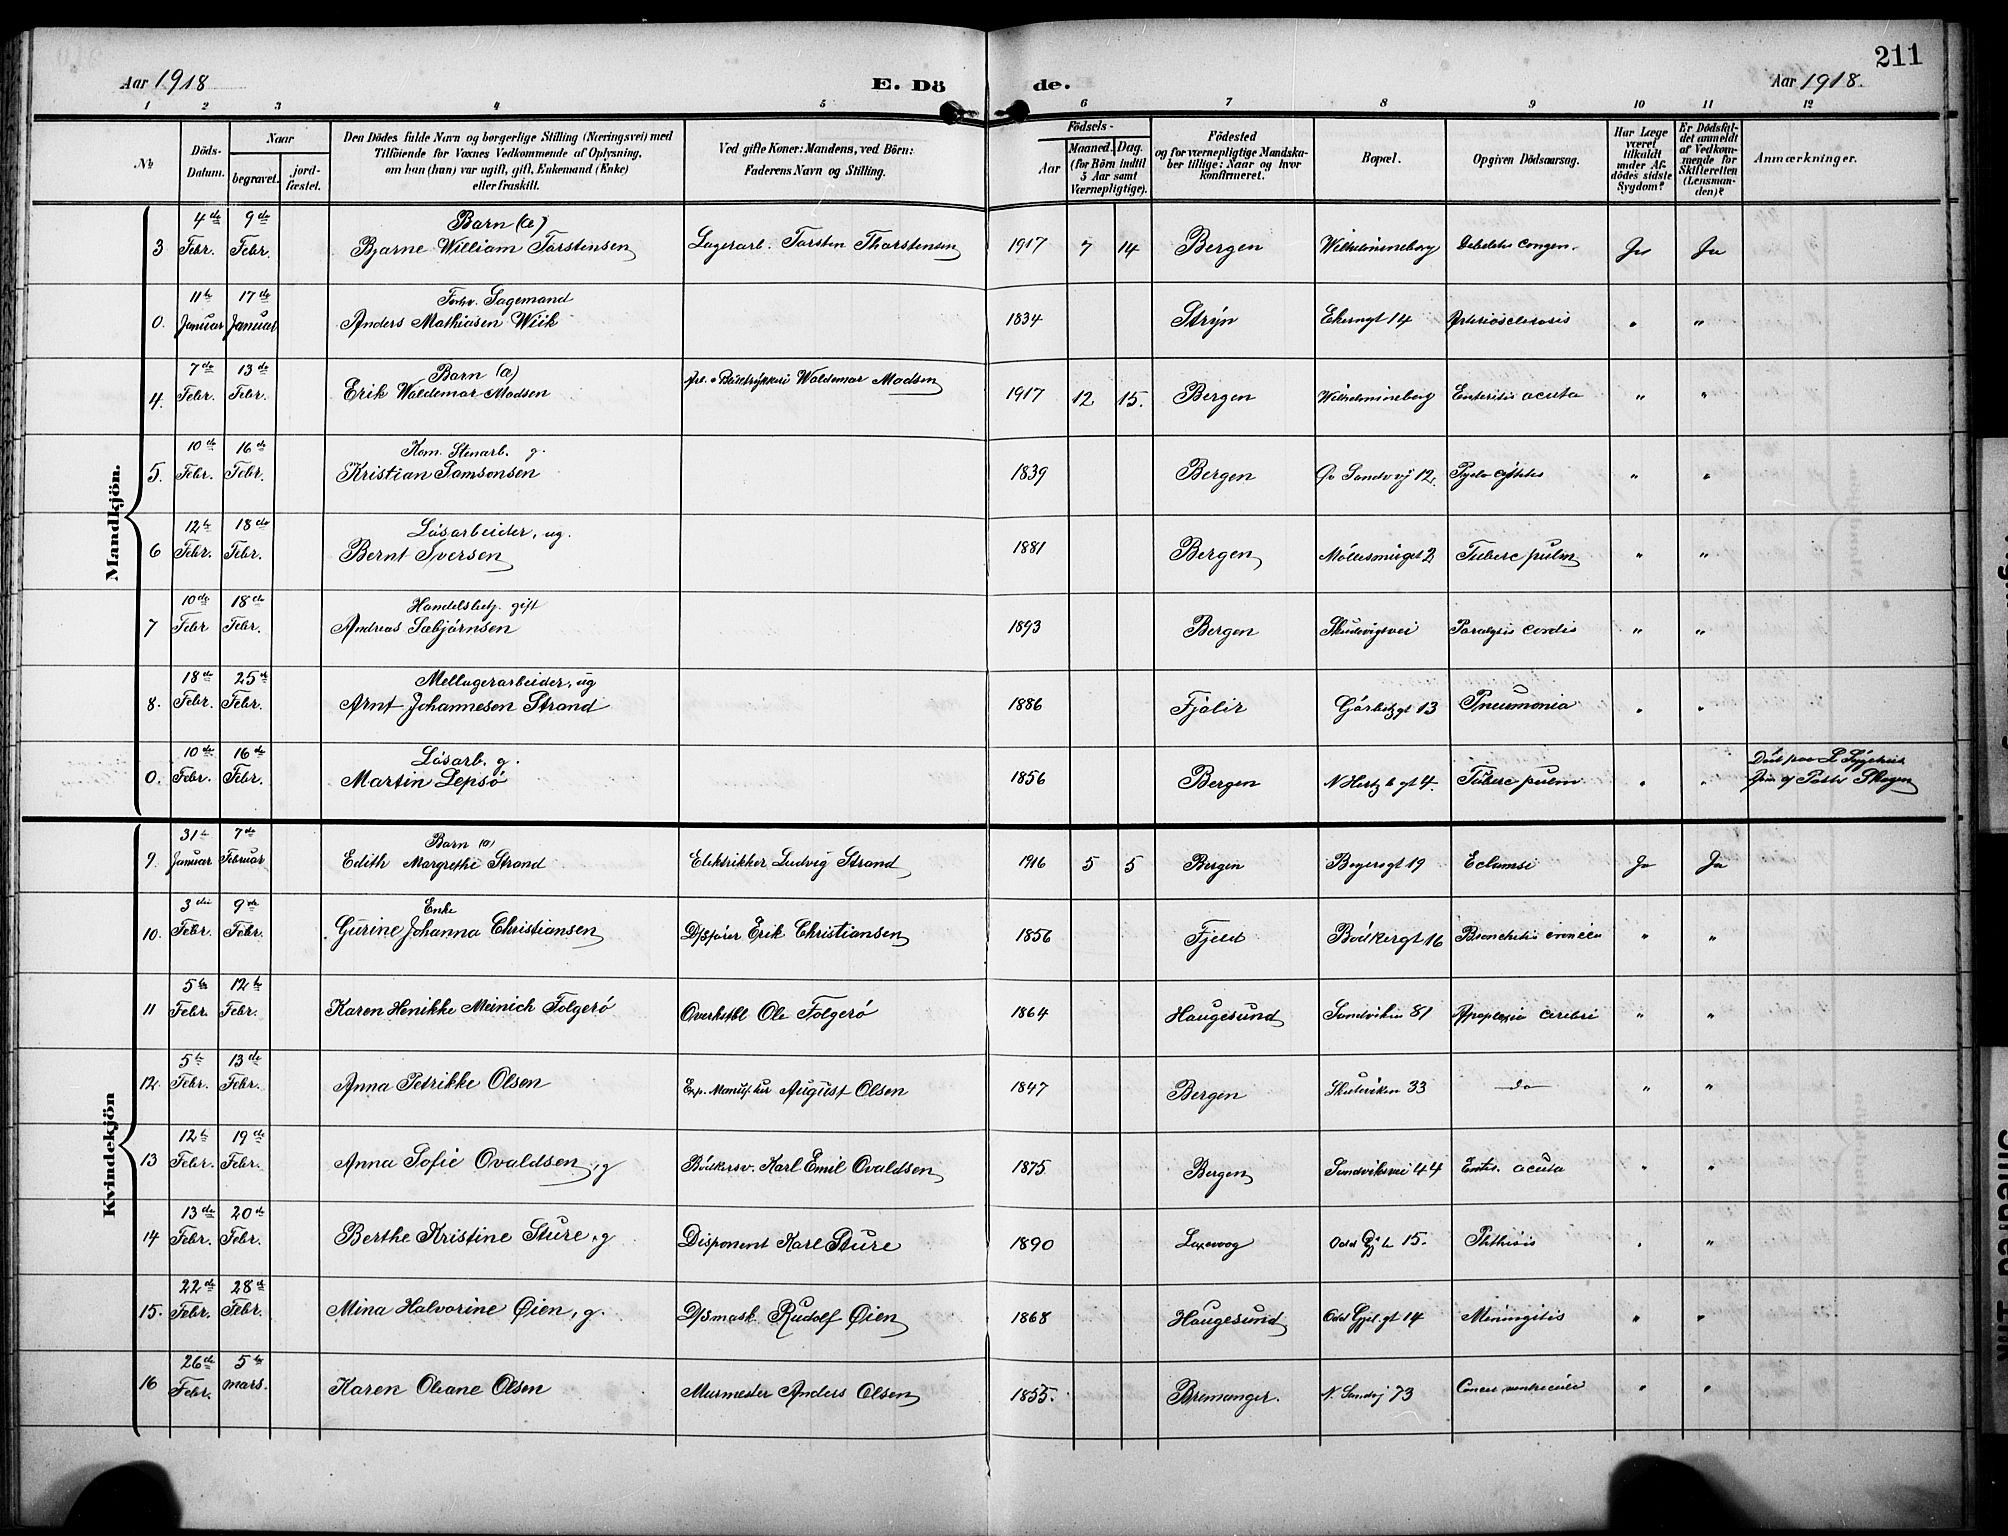 211
Aar 1918
E. Dö de.
Aar 1918.
1 2 3 4 5 6 7 8 9 10 11 12
No Döds-Datum. Naar begravet. jordfæstet. Den Dödes fulde Navn og borgerlige Stilling (Næringsvei) med Tilföiende for Voxnes Vedkommende af Oplysning, om han (hun) var ugift, gift, Enkemand (Enke) eller fraskilt. Ved gifte Koner: Mandens, ved Börn: Faderens Navn og Stilling. Födsels- Aar Maaned. Dag. (for Börn indtil 5 Aar samt Værnepligtige). Födested og for værnepligtige Mandskaber tillige: Naar og hvor konfirmeret. Bopæl. Opgiven Dödsaarsag. Har Læge været tilkaldt under Afdödes sidste Sygdom? Er Dödsfaldet anmeldt af Vedkommende for Skifteretten (Lensmanden)? Anmærkninger.
Mandkjön.
4de 9de Barn (æ)
3 Febr. Febr. Bjarne William Torstensen Lagerarb. Torsten Thorstensen 1917 7 14 Bergen Wilhelmineborg Debilitas congen. Ja Ja
11te 17de Forhv. Sagemand
0. Januar Januar Anders Mathiasen Wiik 1834 Stryn Ekerngt 14 Arteriosclerosis " "
7de 13de Barn (æ)
4. Febr. Febr. Erik Waldemar Madsen Waldemar Madsen 1917 12 15. Bergen Wilhelmineborg Enteritis acuta " "
10de 16de Kom. Stenarb. g.
5. Febr. Febr. Kristian Samsonsen 1839 Bergen Öv Sandvvj 12. " "
12te 18de Løsarbeider, ug.
6 Febr. Febr. Bernt Iversen 1881 Bergen 2 Tuberc pulm " "
10de 18de Handelsbetj. gift
7 Febr Febr. Andreas Sæbjørnsen 1893 Bergen Skudevigsvei Paralysis cordis " "
18de 25de Mellagerarbeider, ug
8. Febr. Febr. Arnt Johannesen Strand 1886 Fjalir 13 Pneumonia " "
10de 16de Løsarb. g.
0. Febr. Febr. Martin Lepsø 1856 Bergen N Hertz b gt 4. Tuberc pulm " " Död paa Skogen
Kvindekjön
31te 7de Barn
9. Januar Februar Edith Margrethe Strand Elektrikker Ludvig Strand 1916 5 5 Bergen Beyersgt 19 Eclamsi Ja Ja
3die 9de Enke
10. Febr. Febr. Gurine Johanna Christiansen D/sfører Erik Christiansen 1856 Fjeld Bødkergt 16 Bronchitis cronica " "
5te 12te
11 Febr. Febr. Karen Henikke Meinich Folgerø Overbetbl Ole Folgerø 1864 Haugesund Sandviken 81 Apoplexia cerebri " "
5te 13de
12. Febr. Febr. Anna Petrikke Olsen August Olsen 1847 Bergen Skuteviken 33 do " "
12te 19de
13 Febr. Febr. Anna Sofie Ovaldsen, g Bødkersv. Karl Emil Ovaldsen 1875 Bergen Sandviksvei 44 Enter. acuta " "
13de 20de
14 Febr. Febr. Berthe Kristine Sture. g Disponent Karl Sture 1890 Laxevaag Odd Gj. 15. Phthisis " "
22de 28de
15. Febr. Febr. Mina Halvorine Øien, g. D/smask. Rudolf Øien 1868 Haugesund Odd Gjel. gt 14 Meningitis " "
26de 5te
16 Febr. mars. Karen Oleane Olsen Murmester Anders Olsen 1855. Bremanger. N. Sandvj 73 Cancer ventriculi " "